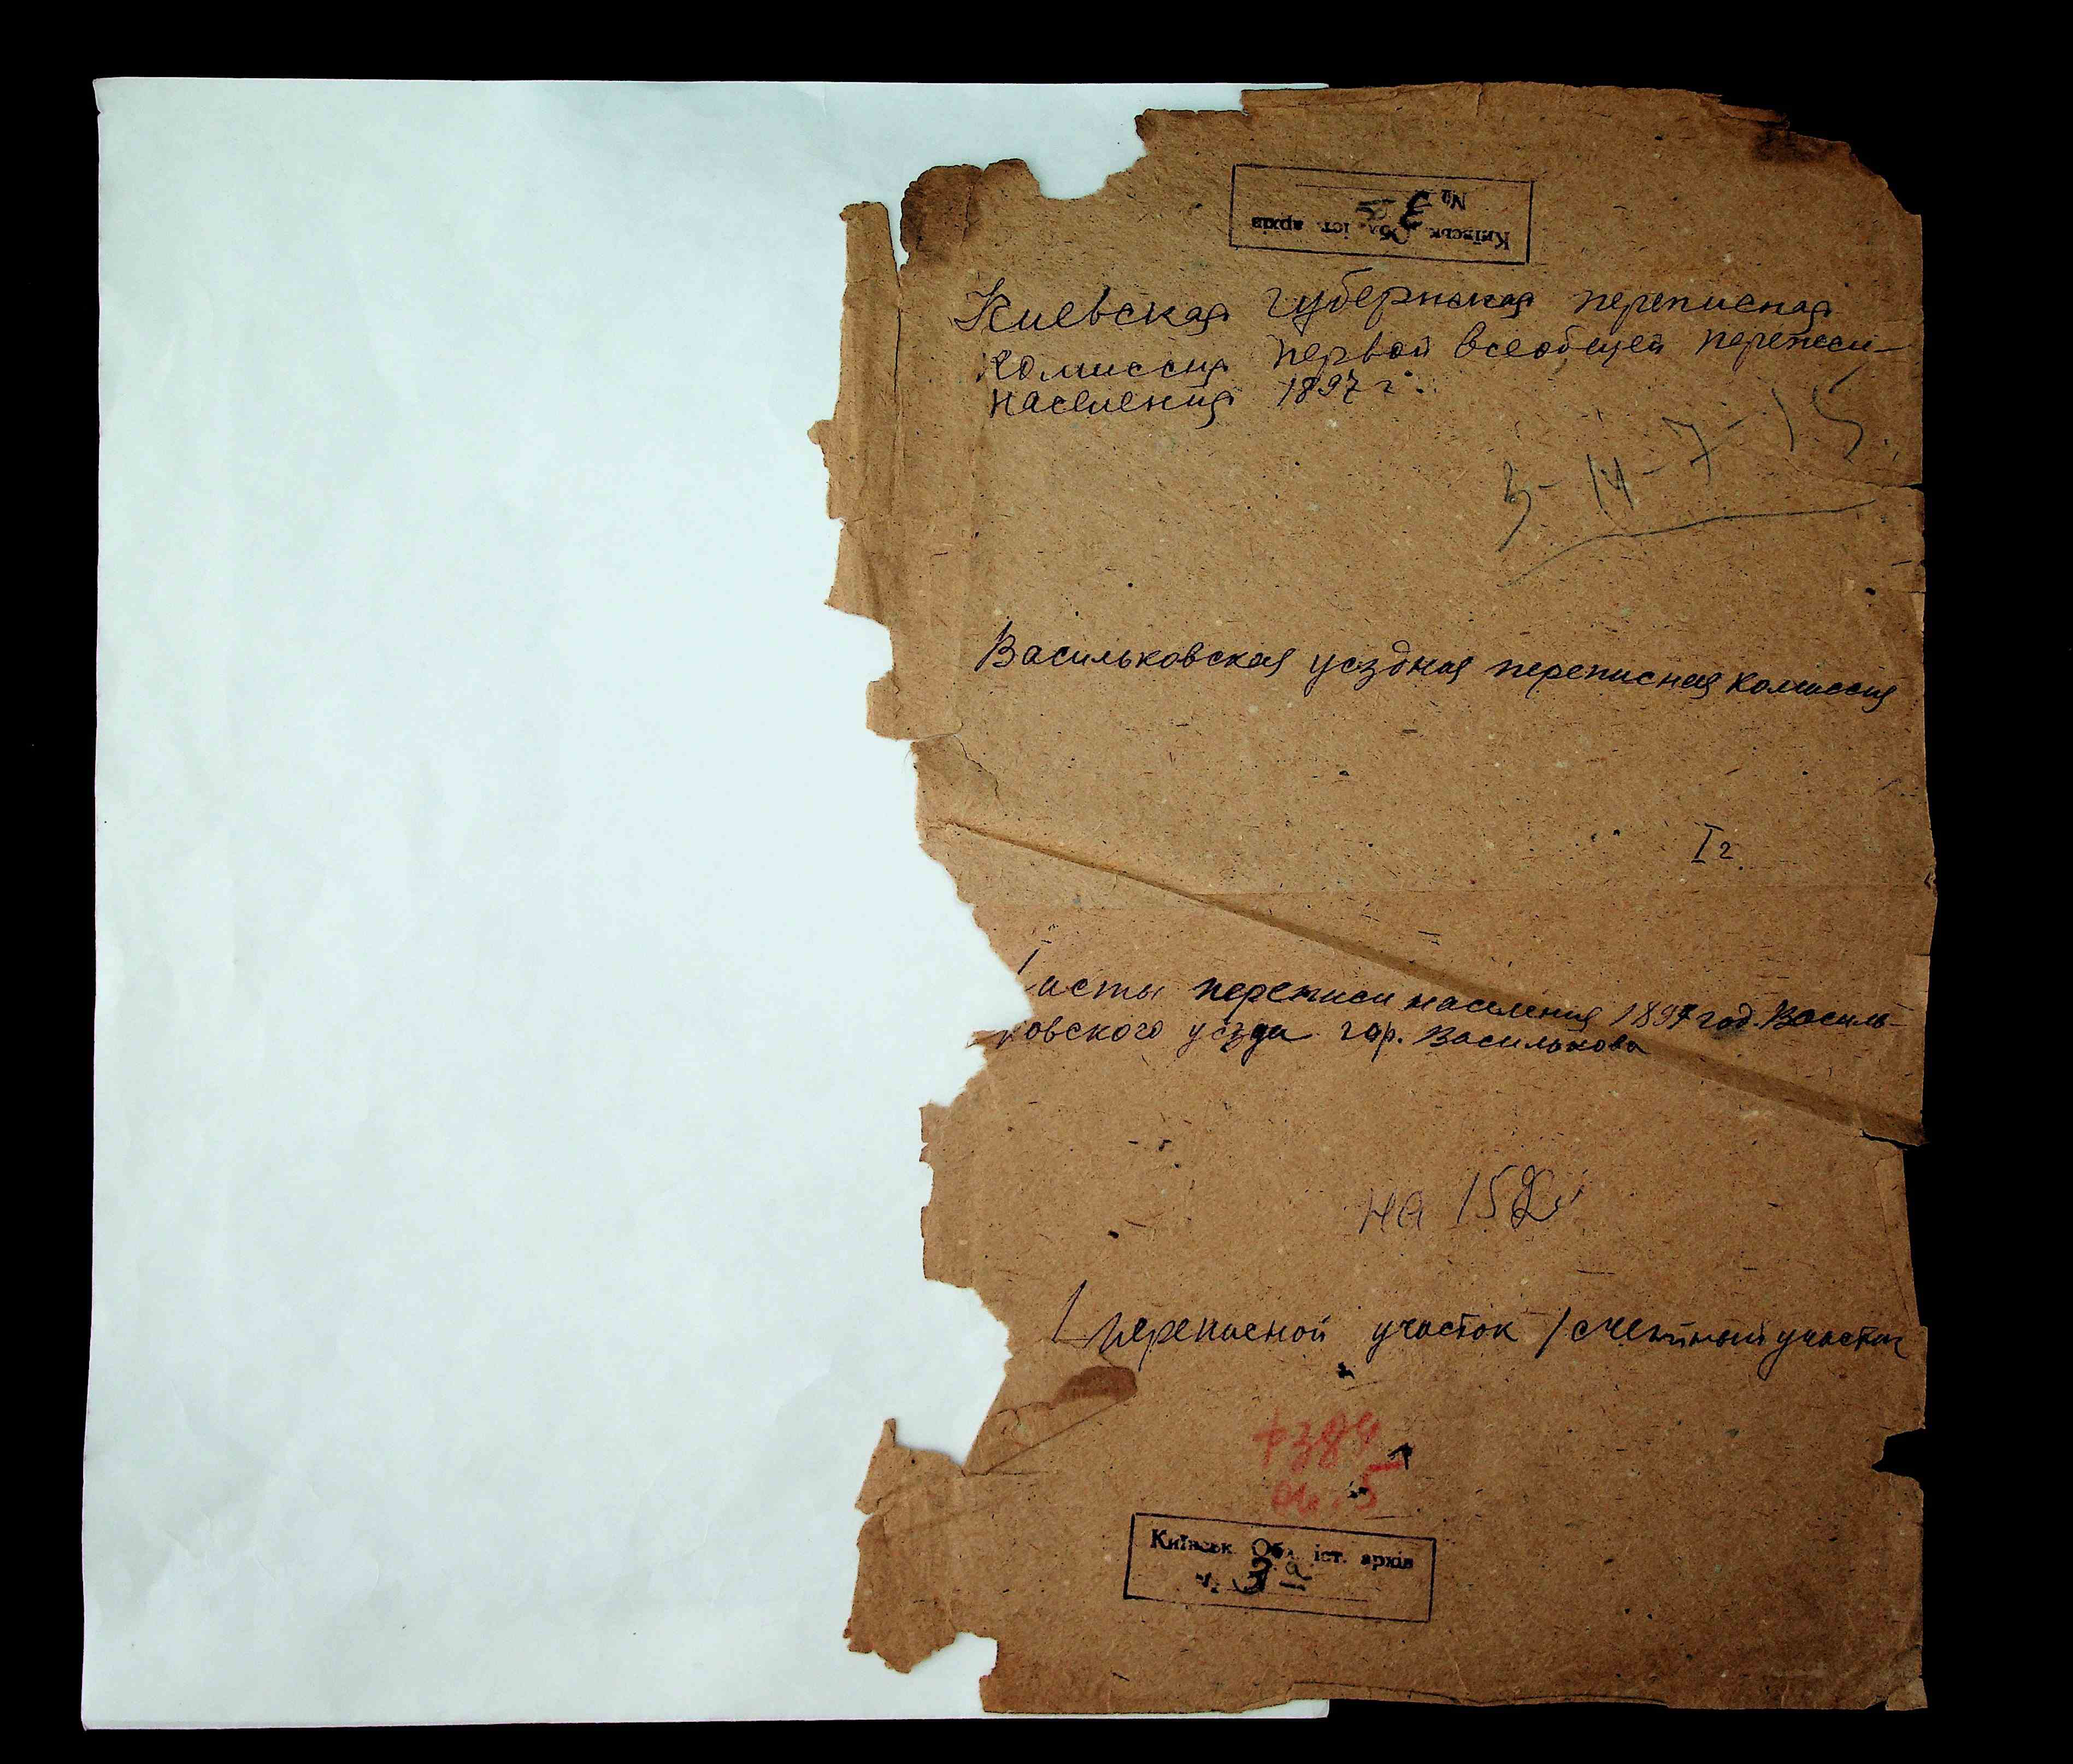 Київськ. Обл. іст. архів
№ 3а
Киевская губернская переписная
комиссия первой всеобщей переписи
населения 1897 г.
3-14-7-15
Васильковская уездная переписная комиссия
I г.
Листы переписи населения 1897 год. Василь-
ковского уезда гор. Василькова
на 152
I переписной участок 1 счетный участок
ф 384
оп. 5
Київськ. Обл. іст. архів
№ 3а